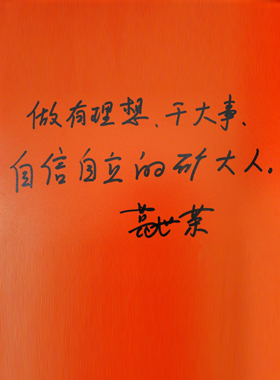 做有理想、干大事、
自信自立的矿大人。
葛世荣